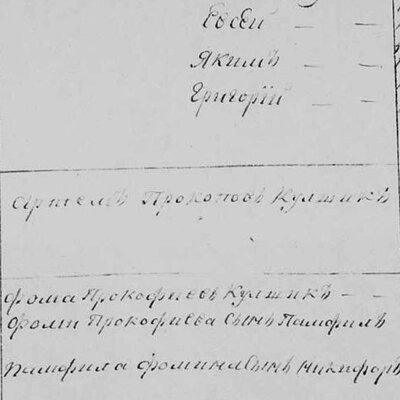 Евсей — —
Якимъ — —
Григорій — —
Артемъ Прокоповъ Кулжикъ
Фома Прокофьевъ Кулжикъ — —
Фомы Прокофьева сынъ Памфилъ
Памфила Фомина сынъ Никифоръ